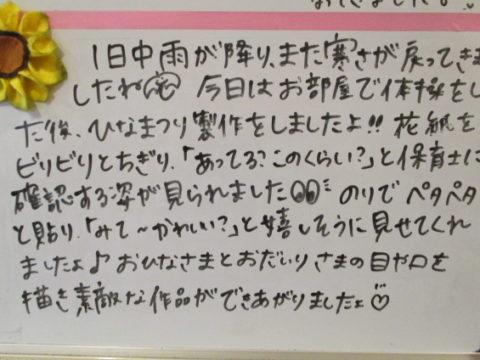 1日中雨が降り、また寒さが戻ってきま
したね 今日はお部屋で体操をし
た後、ひなまつり製作をしましたよ!! 花紙を
ビリビリとちぎり、「あってる?このくらい?」と保育士に
確認する姿が見られました のりでペタペタ
と貼り、「みて〜かわいい?」と嬉しそうに見せてくれ
ましたよ♪ おひなさまとおだいりさまの目や口を
描き素敵な作品ができあがりましたよ♡